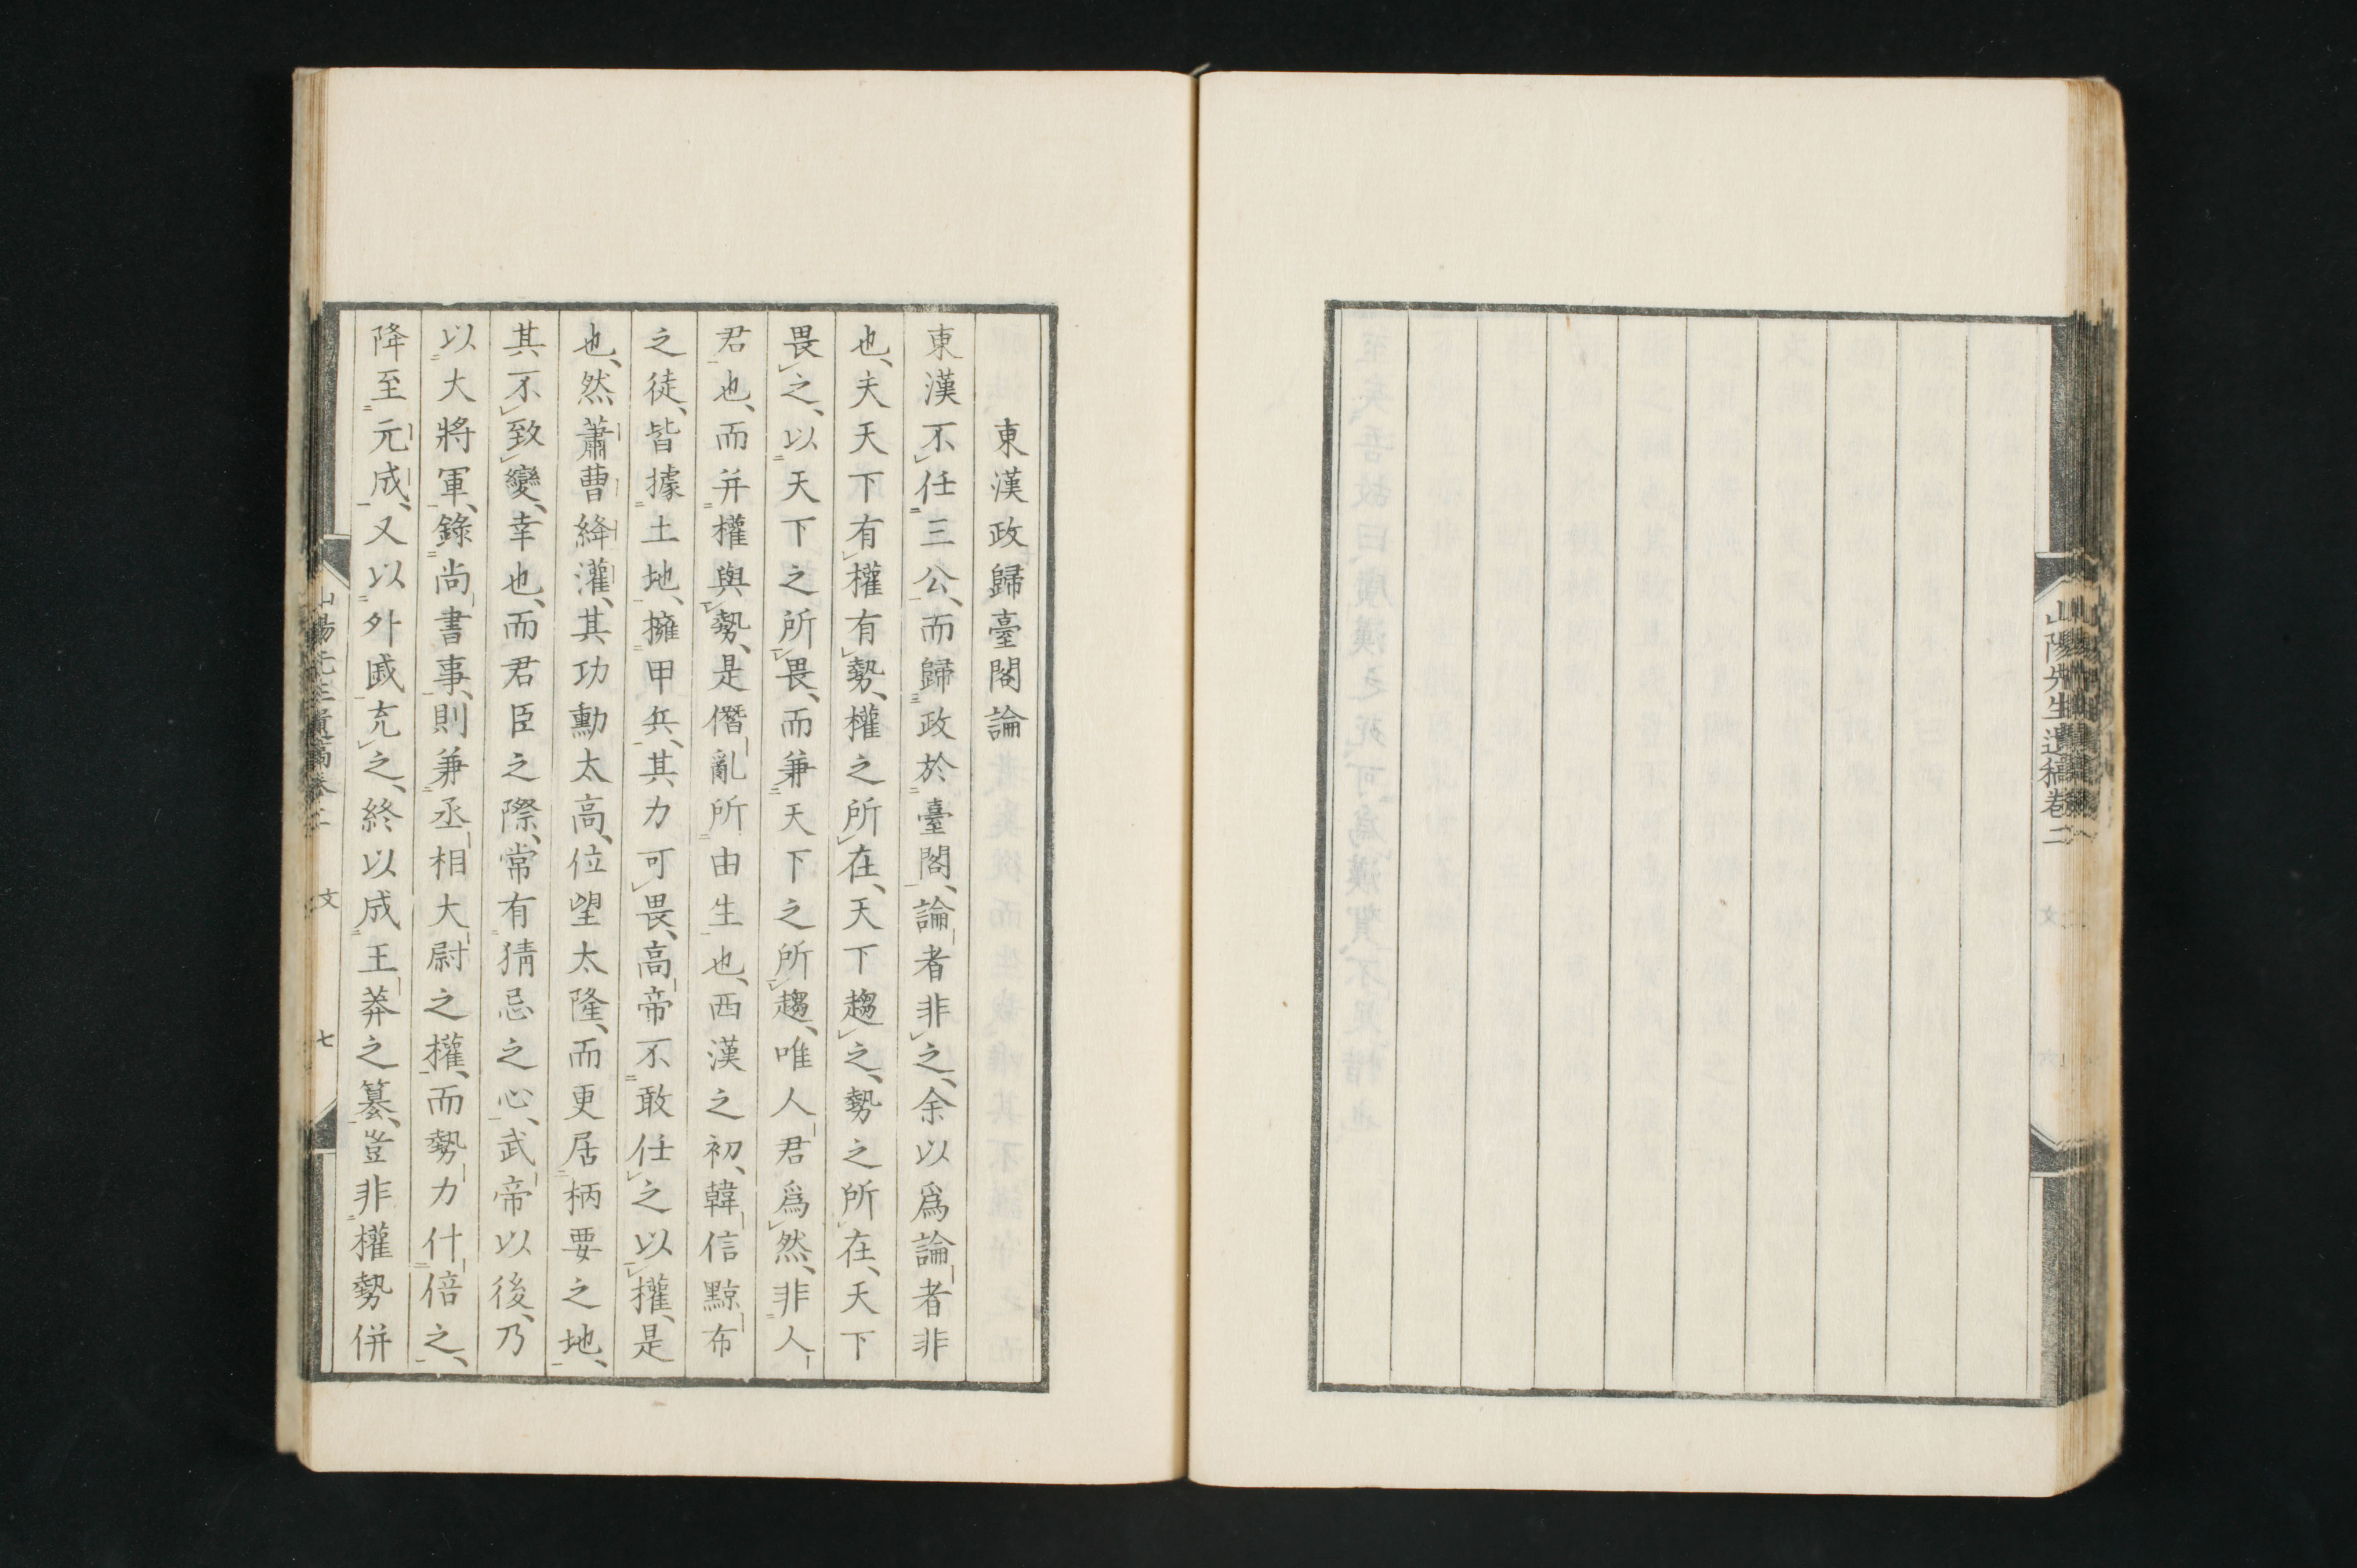 山陽先生遺稿卷二
文
東漢政歸臺閣論
東漢不任三公、而歸政於臺閣、論者非之、余以爲論者非
也、夫天下有權有勢、權之所在、天下趨之、勢之所在、天下
畏之、以天下之所畏、而兼天下之所趨、唯人君爲然、非人
君也、而并權與勢、是僭亂所由生也、西漢之初、韓信黥布
之徒、皆據土地、擁甲兵、其力可畏、高帝不敢任之以權、是
也、然蕭曹絳灌、其功勳太高、位望太隆、而更居柄要之地、
其不致變、幸也、而君臣之際、常有猜忌之心、武帝以後、乃
以大將軍、錄尚書事、則兼丞相大尉之權、而勢力什倍之、
降至元成、又以外戚充之、終以成王莽之簒、豈非權勢併
山陽先生遺稿卷二
文
七